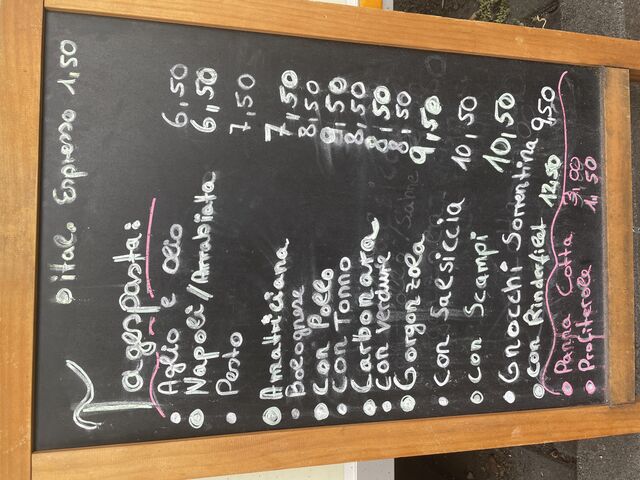 ital. Espresso 1,50
Tagespasta:
Aglio e Olio 6,50
Napoli/Arrabiata 6,50
Pesto 7,50
Amatriciana 7,50
Bolognese 8,50
Con Pollo 9,50
con Tonno 8,50
Carbonara 8,50
con verdure 8,50
Gorgonzola 9,50
con Salsiccia 10,50
con Scampi 10,50
Gnocchi Sorrentina 9,50
con Rinderfilet 12,50
Panna Cotta 3,00
Profiterole 1,50